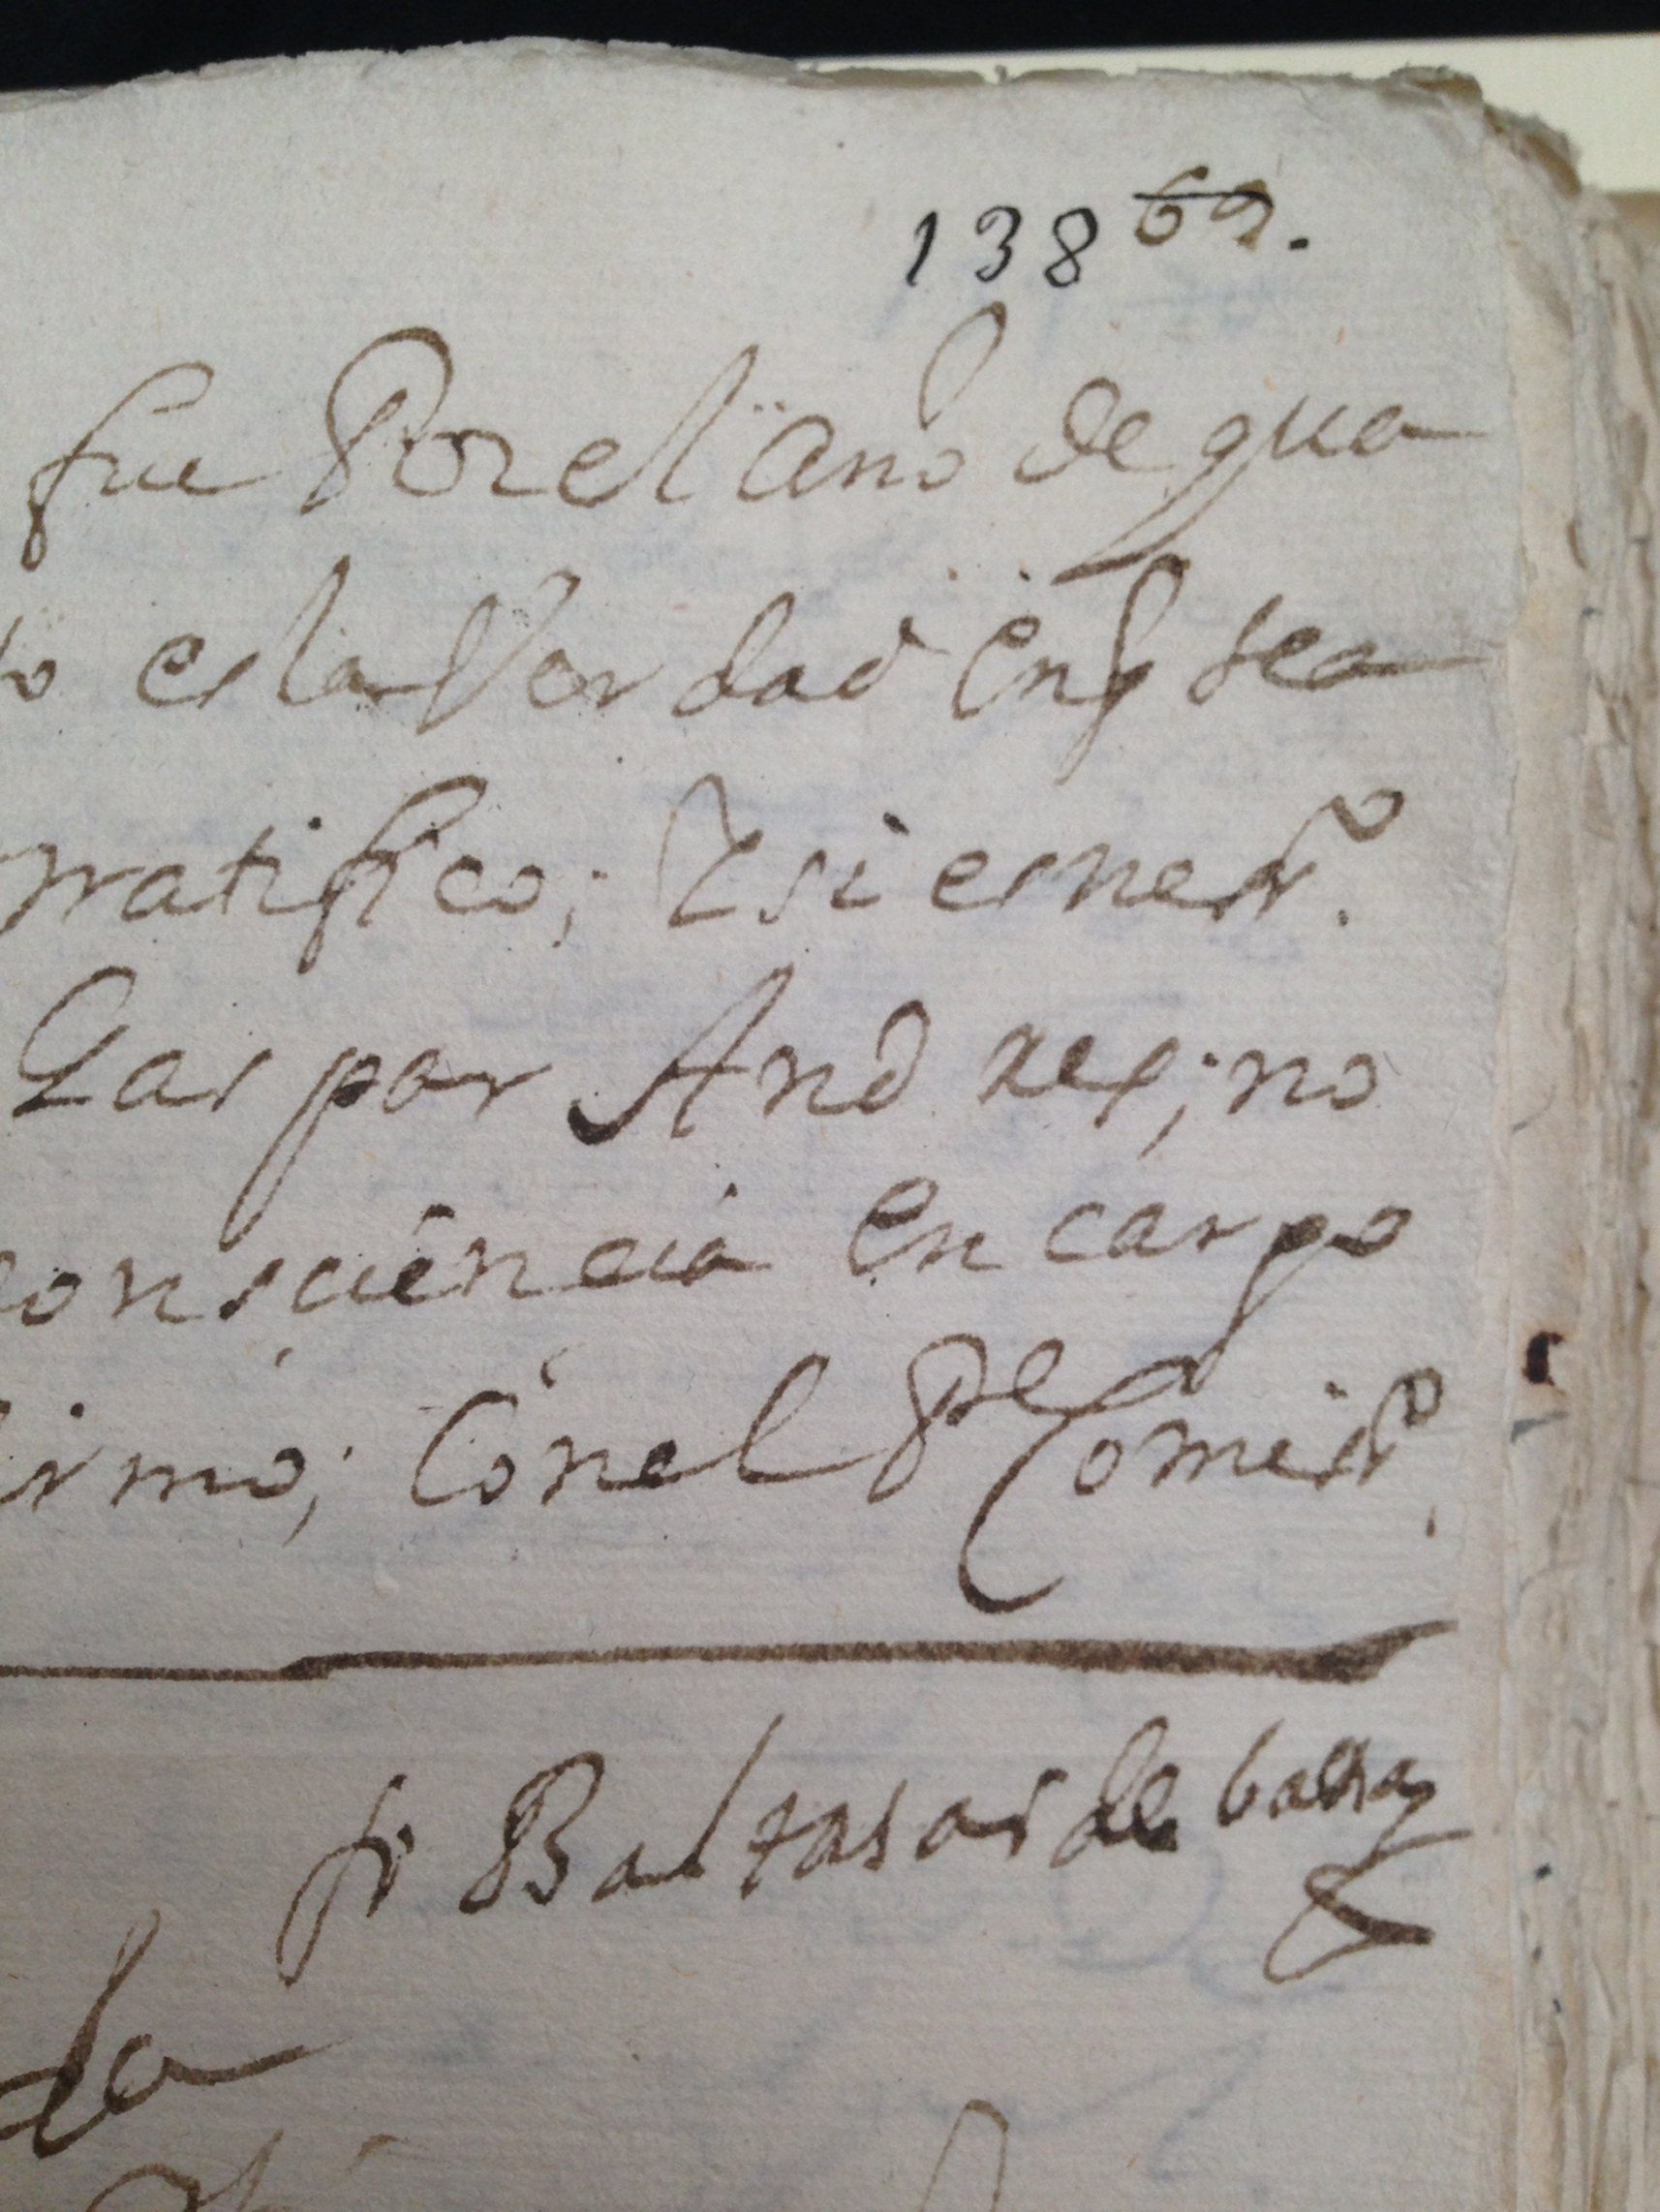 138 69.
fue Por el año de qua
to es la Verdad en q se a
rratifico; Y si es nessº.
Gaspar Andres; no
consciencia encargo
firmo; Con el Pe Comissº,
fr Baltasar de
da